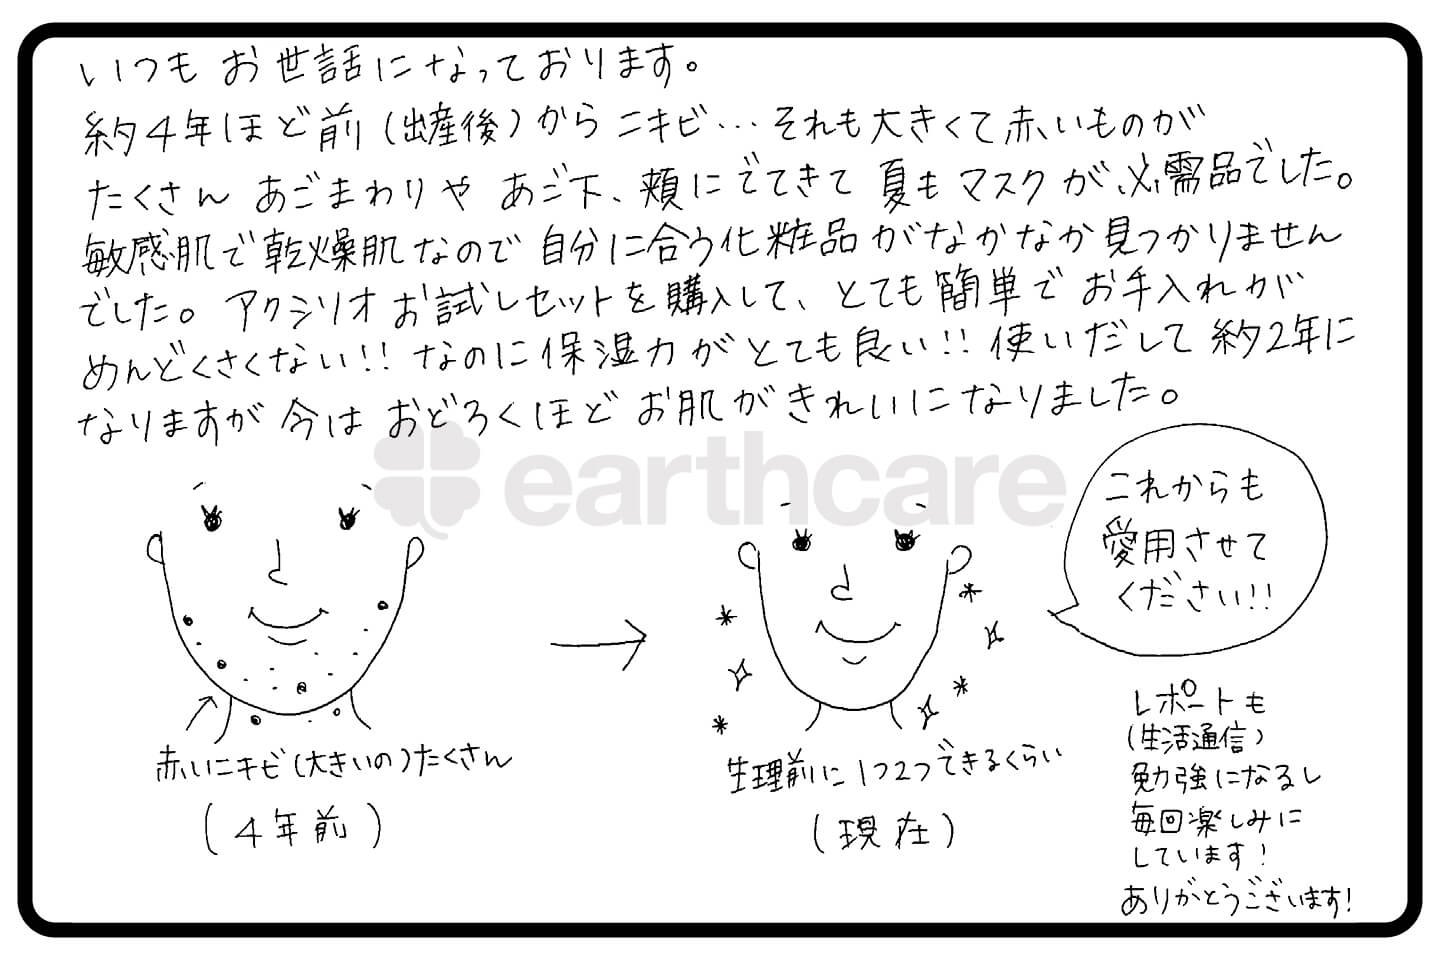 いつもお世話になっております。
約4年ほど前(出産後)からニキビ…それも大きくて赤いものが
たくさん あごまわりや あご下、頬にでてきて 夏もマスクが必需品でした。
敏感肌で乾燥肌なので 自分に合う化粧品がなかなか見つかりません
でした。アクシリオお試しセットを購入して、とても簡単でお手入れが
めんどくさくない!! なのに保湿力がとても良い!! 使いだして 約2年に
なりますが 今は おどろくほど お肌がきれいになりました。
earthcare
これからも
愛用させて
ください!!
赤いニキビ(大きいの)たくさん
(4年前)
生理前に1つ2つできるくらい
(現在)
レポートも
(生活通信)
勉強になるし
毎回楽しみに
しています!
ありがとうございます!